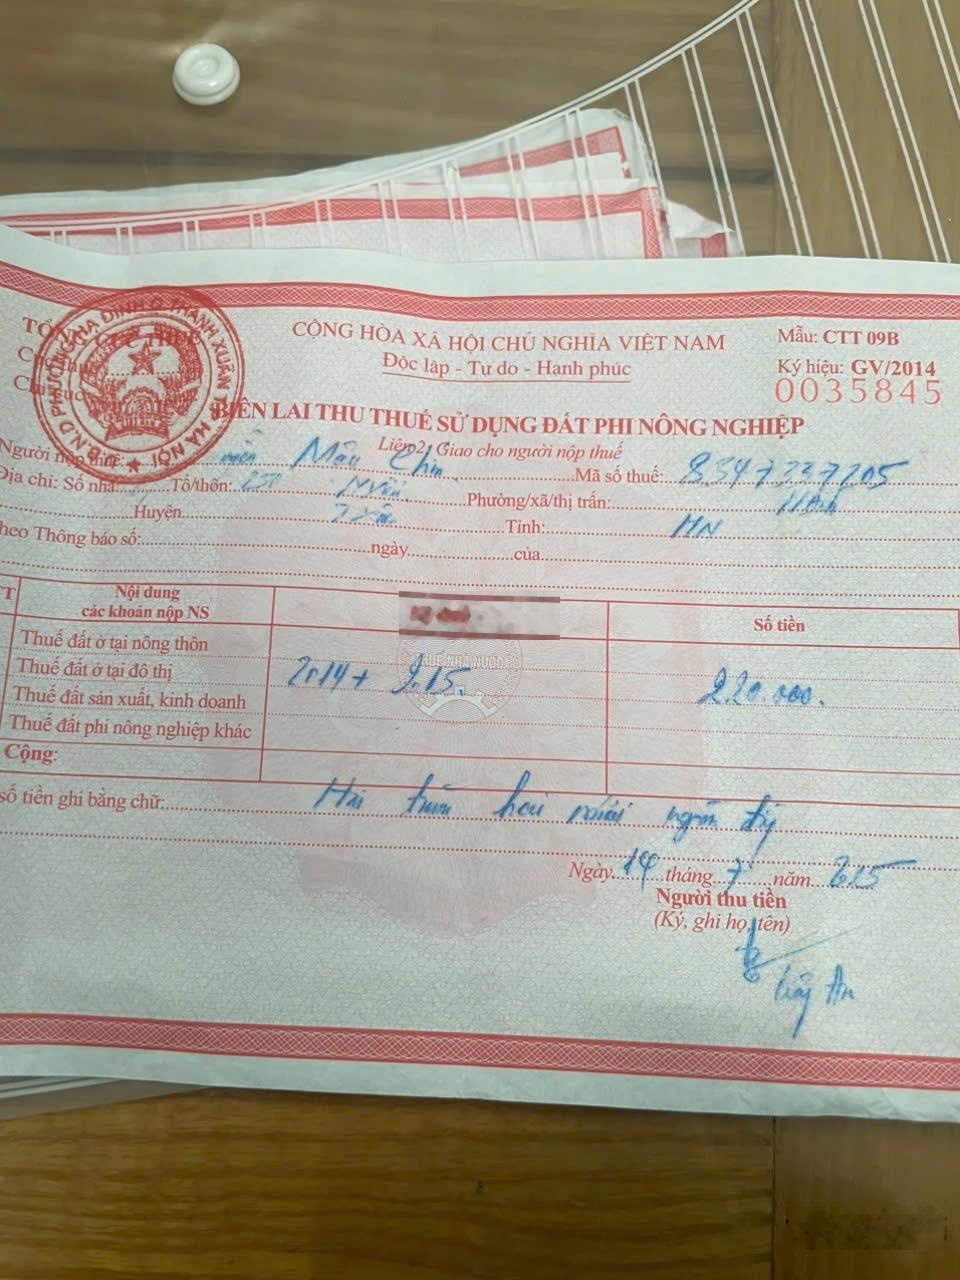 CỘNG HÒA XÃ HỘI CHỦ NGHĨA VIỆT NAM
Độc lập - Tự do - Hạnh phúc
Mẫu: CTT 09B
Ký hiệu: GV/2014
0035845
BIÊN LAI THU THUẾ SỬ DỤNG ĐẤT PHI NÔNG NGHIỆP
Liên 2: Giao cho người nộp thuế
Người nộp thuế: Mậu Chín Mã số thuế: 8347237205
Địa chỉ: Số nhà: Tổ/thôn: Phường/xã/thị trấn:
Huyện T Xuân Tỉnh: HN
heo Thông báo số: ngày của
TT Nội dung các khoản nộp NS Số tiền
Thuế đất ở tại nông thôn
THUẾ NHÀ NƯỚC
Thuế đất ở tại đô thị 2014 + 2015 220.000.
Thuế đất sản xuất, kinh doanh
Thuế đất phi nông nghiệp khác
Cộng:
số tiền ghi bằng chữ: Hai trăm hai mươi ngàn đg
Ngày 14 tháng 7 năm 2015
Người thu tiền
(Ký, ghi họ, tên)